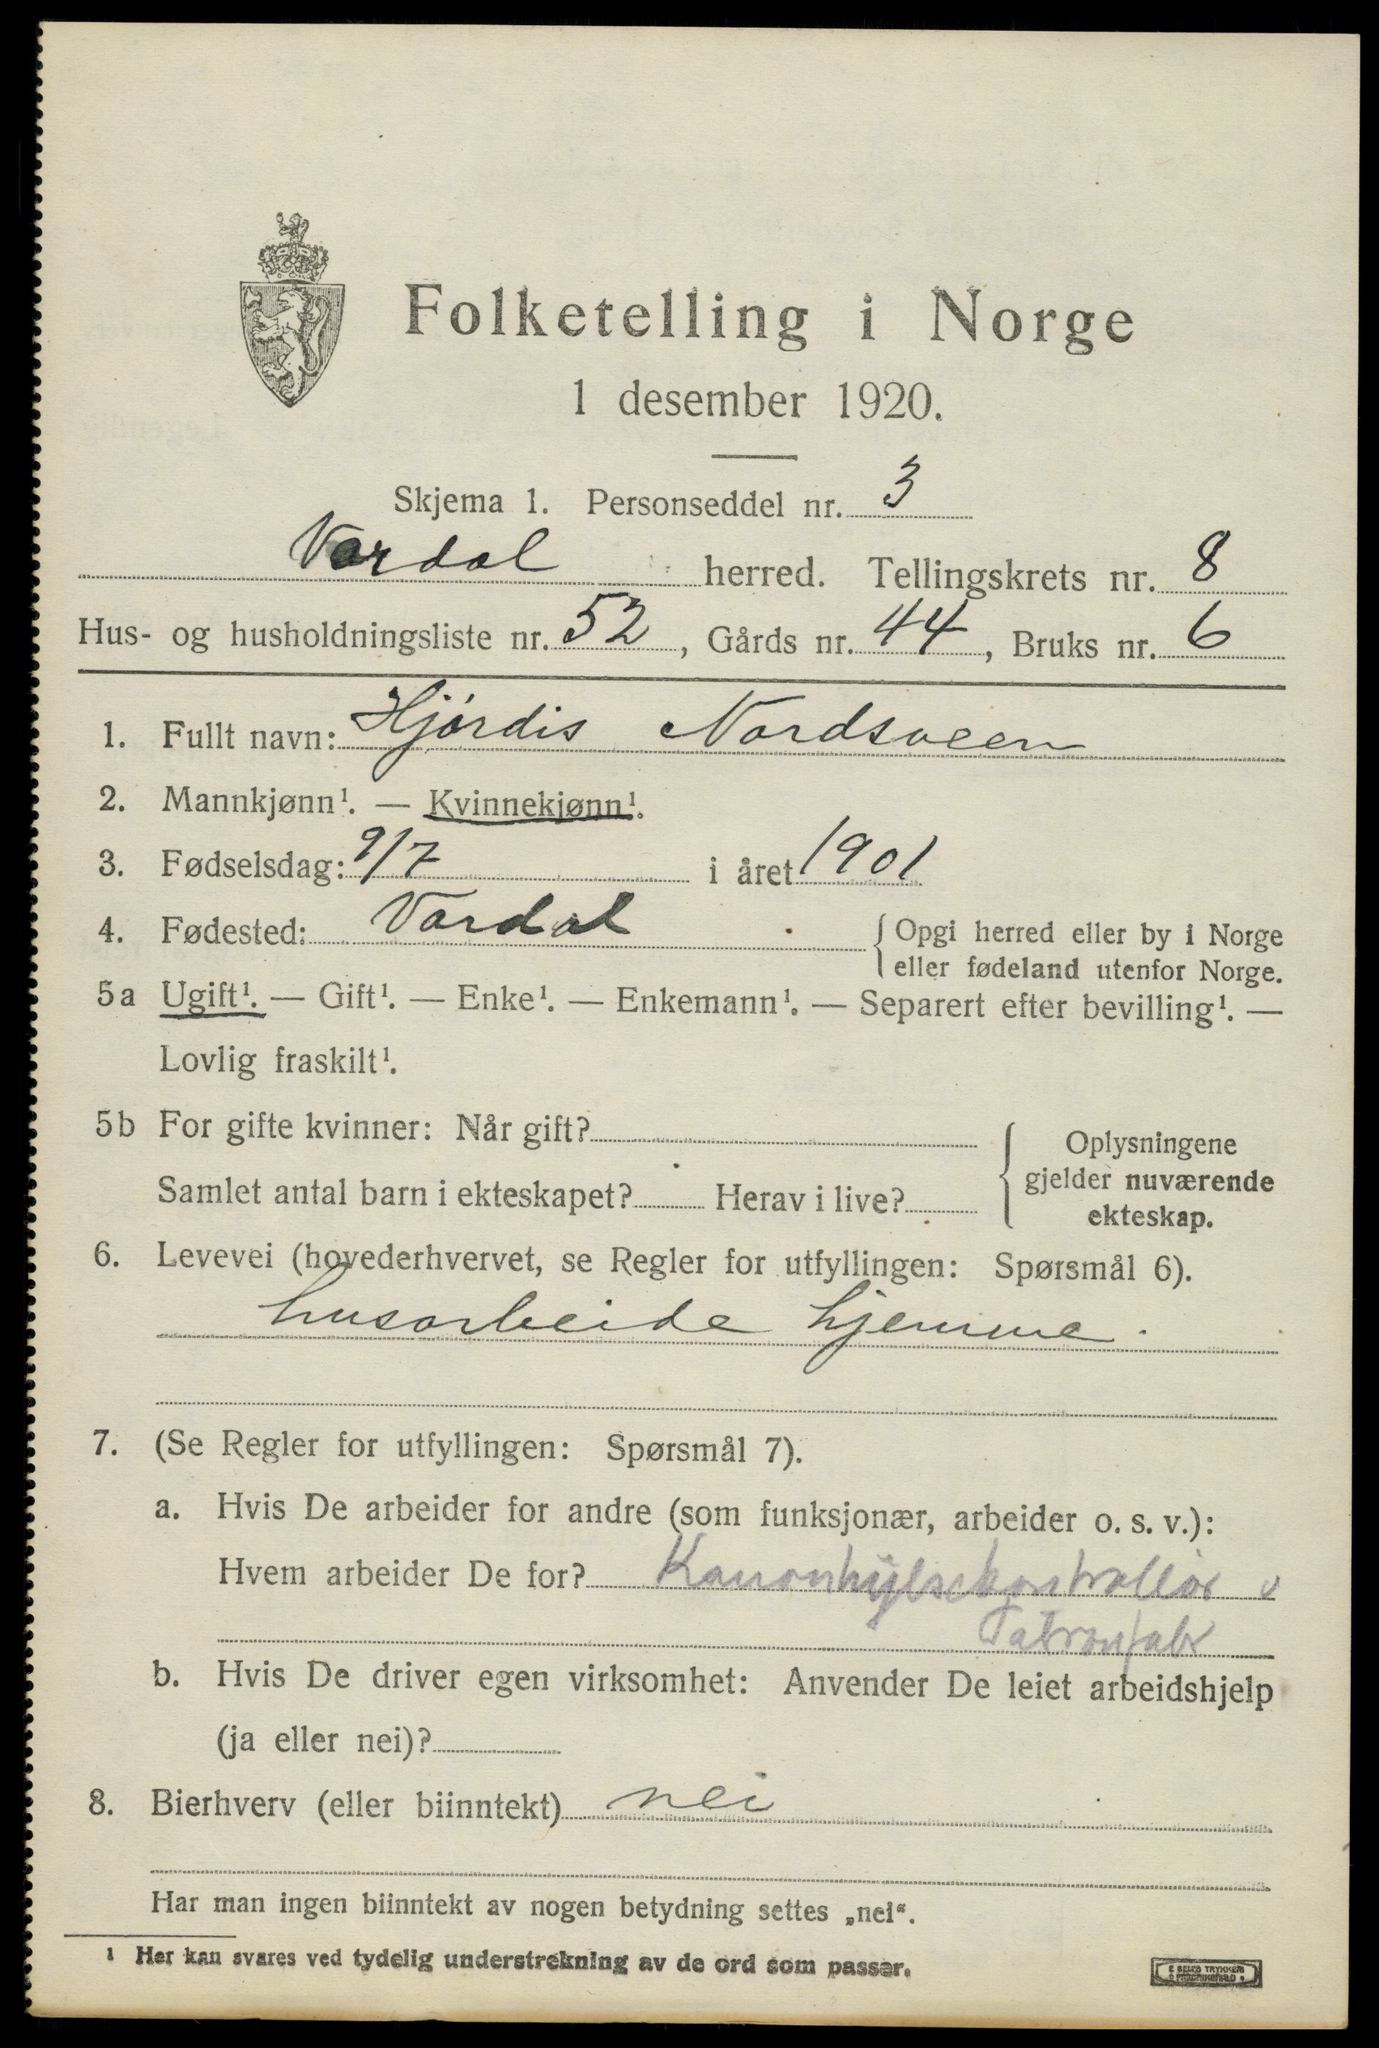 Folketelling i Norge
1 desember 1920.
Skjema 1. Personseddel nr. 3
Vardal herred. Tellingskrets nr. 8
Hus- og husholdningsliste nr. 52, Gårds nr. 44, Bruks nr. 6
1. Fullt navn: Hjördis Nordsveen
2. Mannkjønn¹. — Kvinnekjønn¹.
3. Fødselsdag: 9/7 i året 1901
4. Fødested: Vardal {Opgi herred eller by i Norge
eller fødeland utenfor Norge.
5a Ugift¹. — Gift¹. — Enke¹. — Enkemann¹. — Separert efter bevilling¹. —
Lovlig fraskilt¹.
5b For gifte kvinner: Når gift?
Samlet antal barn i ekteskapet? Herav i live?
Oplysningene
gjelder nuværende
ekteskap.
6. Levevei (hovederhvervet, se Regler for utfyllingen: Spørsmål 6).
husarbeide hjemme.
7. (Se Regler for utfyllingen: Spørsmål 7).
a. Hvis De arbeider for andre (som funksjonær, arbeider o. s. v.):
Hvem arbeider De for? Kanonhylsekontrollör v
Patronfabr
b. Hvis De driver egen virksomhet: Anvender De leiet arbeidshjelp
(ja eller nei)?
8. Bierhverv (eller biinntekt) nei
Har man ingen biinntekt av nogen betydning settes „nei“.
¹ Her kan svares ved tydelig understrekning av de ord som passer.